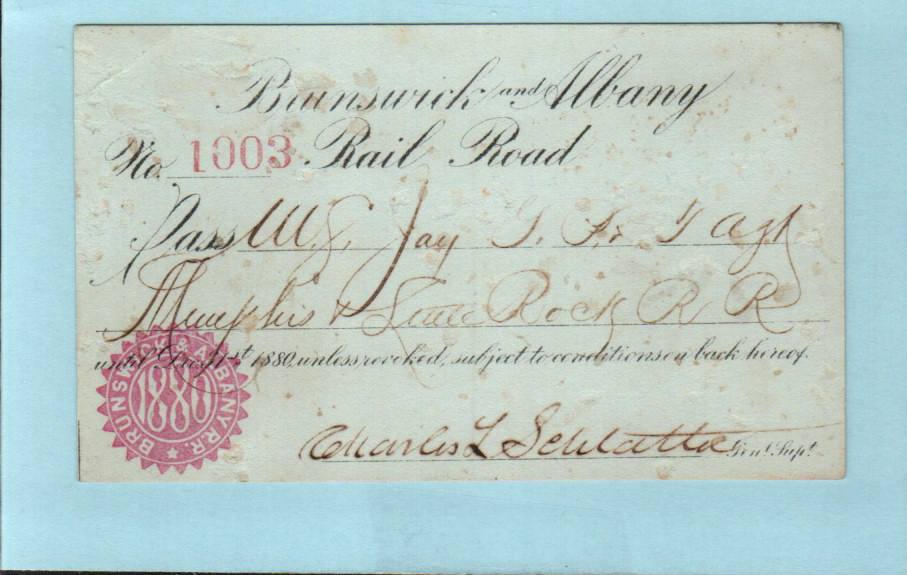 Brunswick and Albany
No. 1003 Rail Road
Pass W. S. Jay G. F. & T Agt
Memphis & Little Rock R R
until Dec. 31st 1880, unless revoked, subject to conditions on back hereof.
BRUNSWICK & ALBANY R.R.
1880
Charles L Schlatter Gen'l Sup't.